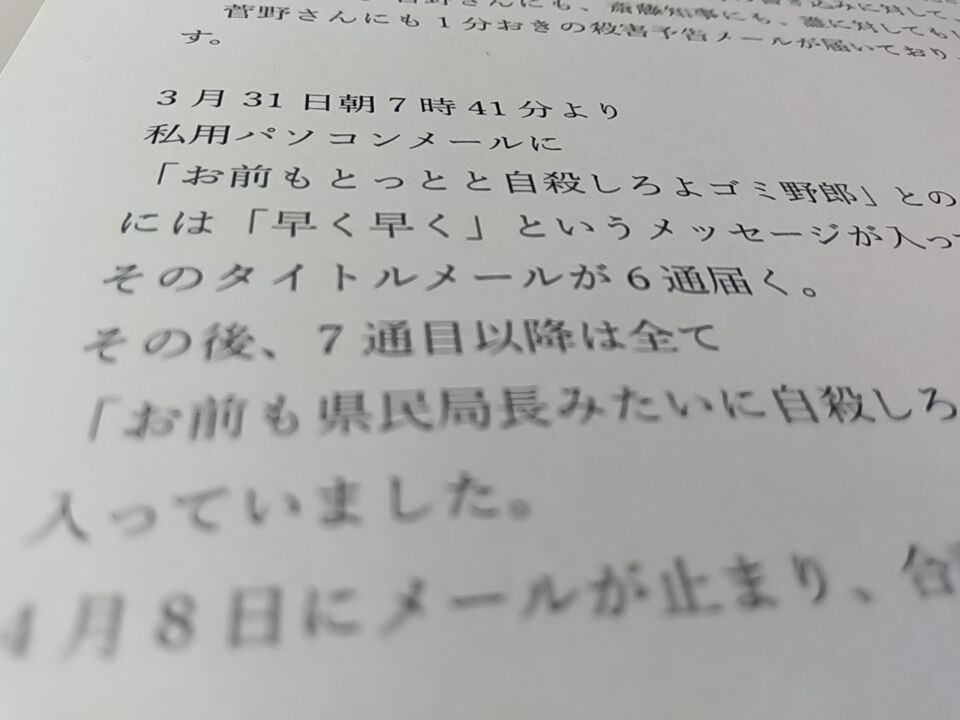 菅野さんにも1分おきの殺害予告メールが届いており
す。
3月31日朝7時41分より
私用パソコンメールに
「お前もとっとと自殺しろよゴミ野郎」との
には「早く早く」というメッセージが入っ
そのタイトルメールが6通届く。
その後、7通目以降は全て
「お前も県民局長みたいに自殺しろ
入っていました。
4月8日にメールが止まり、合